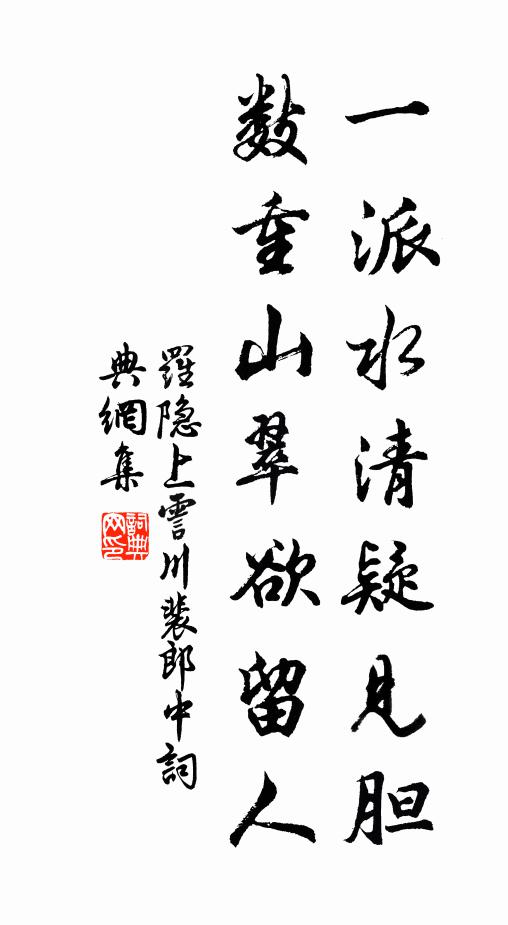 一派水清疑见胆
数重山翠欲留人
羅隐上霅川裴郎中詞
典網集
詞典
网印